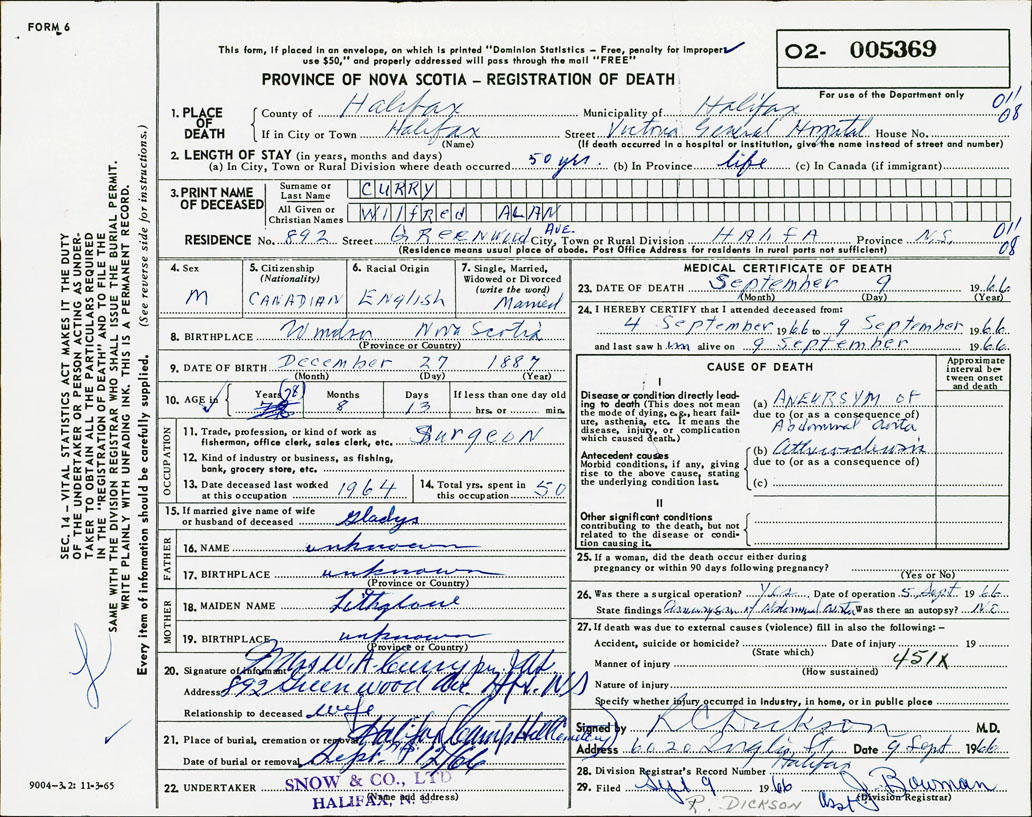 FORM 6
This form, if placed in an envelope, on which is printed "Dominion Statistics – Free, penalty for improper
use $50," and properly addressed will pass through the mail "FREE"
PROVINCE OF NOVA SCOTIA – REGISTRATION OF DEATH
02- 005369
For use of the Department only
011
08
1. PLACE OF DEATH
County of Halifax Municipality of Halifax
If in City or Town Halifax Street Victoria General Hospital House No.
(Name) (If death occurred in a hospital or institution, give the name instead of street and number)
2. LENGTH OF STAY (in years, months and days)
(a) In City, Town or Rural Division where death occurred 50 yrs. (b) In Province life (c) In Canada (if immigrant)
3. PRINT NAME OF DECEASED
Surname or Last Name CURRY
All Given or Christian Names Wilfred ALAN
RESIDENCE No. 892 Street GREENWood AVE. City, Town or Rural Division HAlifA Province N.S.
(Residence means usual place of abode. Post Office Address for residents in rural parts not sufficient)
011
08
4. Sex M
5. Citizenship (Nationality) CANADIAN
6. Racial Origin English
7. Single, Married, Widowed or Divorced (write the word) Married
8. BIRTHPLACE Windsor Nova Scotia
(Province or Country)
9. DATE OF BIRTH December 27 1887
(Month) (Day) (Year)
10. AGE in Years (78) Months 8 Days 13 If less than one day old hrs. or min.
OCCUPATION
11. Trade, profession, or kind of work as
fisherman, office clerk, sales clerk, etc. Surgeon
12. Kind of industry or business, as fishing,
bank, grocery store, etc.
13. Date deceased last worked
at this occupation 1964
14. Total yrs. spent in
this occupation 50
15. If married give name of wife
or husband of deceased Gladys
FATHER
16. NAME unknown
17. BIRTHPLACE unknown
(Province or Country)
MOTHER
18. MAIDEN NAME
19. BIRTHPLACE unknown
(Province or Country)
20. Signature of Informant Mrs W. A. Curry
Address 892 Greenwood Ave Hfx. N.S
Relationship to deceased wife
21. Place of burial, cremation or removal Halifax Camp Hill Cemetery
Date of burial or removal Sept. 12/66
22. UNDERTAKER SNOW & CO., LTD
HALIFAX, N. S.
(Name and address)
MEDICAL CERTIFICATE OF DEATH
23. DATE OF DEATH September 9 1966
(Month) (Day) (Year)
24. I HEREBY CERTIFY that I attended deceased from:
4 September 1966 to 9 September 1966
and last saw him alive on 9 September 1966
CAUSE OF DEATH
Approximate interval between onset and death
I
Disease or condition directly leading to death (This does not mean
the mode of dying, e.g., heart failure, asthenia, etc. It means the
disease, injury, or complication
which caused death.)
(a) ANEURSYM OF
due to (or as a consequence of)
Abdominal Aorta
Antecedent causes
Morbid conditions, if any, giving
rise to the above cause, stating
the underlying condition last.
(b)
due to (or as a consequence of)
(c)
II
Other significant conditions
contributing to the death, but not
related to the disease or condition causing it.
25. If a woman, did the death occur either during
pregnancy or within 90 days following pregnancy?
(Yes or No)
26. Was there a surgical operation? Yes Date of operation 5 Sept 1966
State findings Aneurysm of Abdominal Aorta Was there an autopsy? No
27. If death was due to external causes (violence) fill in also the following: –
Accident, suicide or homicide? Date of injury 19
(State which) 451X
Manner of injury
(How sustained)
Nature of injury
Specify whether injury occurred in industry, in home, or in public place
Signed by R C Dickson M.D.
Address 6020 Inglis St, Halifax Date 9 Sept 1966
28. Division Registrar's Record Number
29. Filed Sept 9 1966 J. Bowman
Asst (Division Registrar)
R. DICKSON
SEC. 14 – VITAL STATISTICS ACT MAKES IT THE DUTY
OF THE UNDERTAKER OR PERSON ACTING AS UNDER-
TAKER TO OBTAIN ALL THE PARTICULARS REQUIRED
IN THE "REGISTRATION OF DEATH" AND TO FILE THE
SAME WITH THE DIVISION REGISTRAR WHO SHALL ISSUE THE BURIAL PERMIT.
WRITE PLAINLY WITH UNFADING INK. THIS IS A PERMANENT RECORD.
Every item of information should be carefully supplied. (See reverse side for instructions.)
9004–3.2: 11-3-65